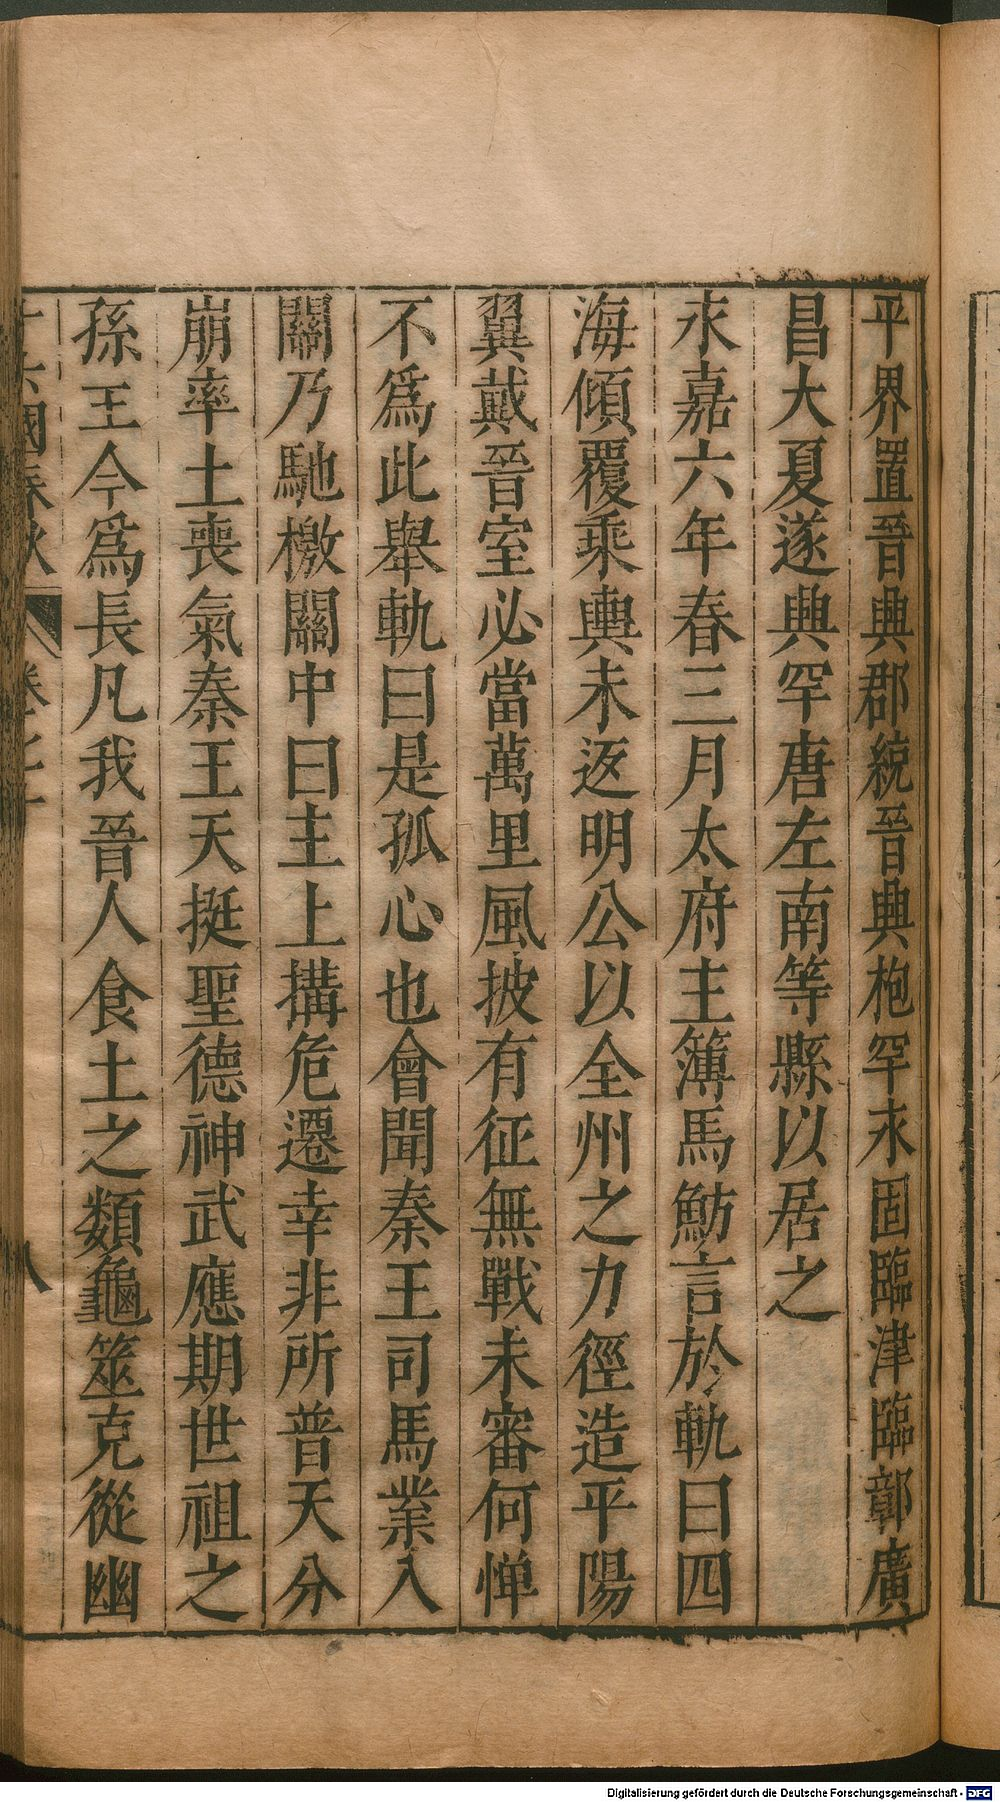 平界置晉興郡統晉興枹罕永固臨津臨鄣廣
昌大夏遂興罕唐左南等縣以居之
永嘉六年春三月太府主簿馬魴言於軌曰四
海傾覆乘輿未返明公以全州之力徑造平陽
翼戴晉室必當萬里風披有征無戰未審何憚
不爲此舉軌曰是孤心也會聞秦王司馬業入
關乃馳檄關中曰主上搆危遷幸非所普天分
崩率土喪氣秦王天挺聖德神武應期世祖之
孫王今爲長凡我晉人食土之類龜筮克從幽
國春秋
八
Digitalisierung gefördert durch die Deutsche Forschungsgemeinschaft - DFG